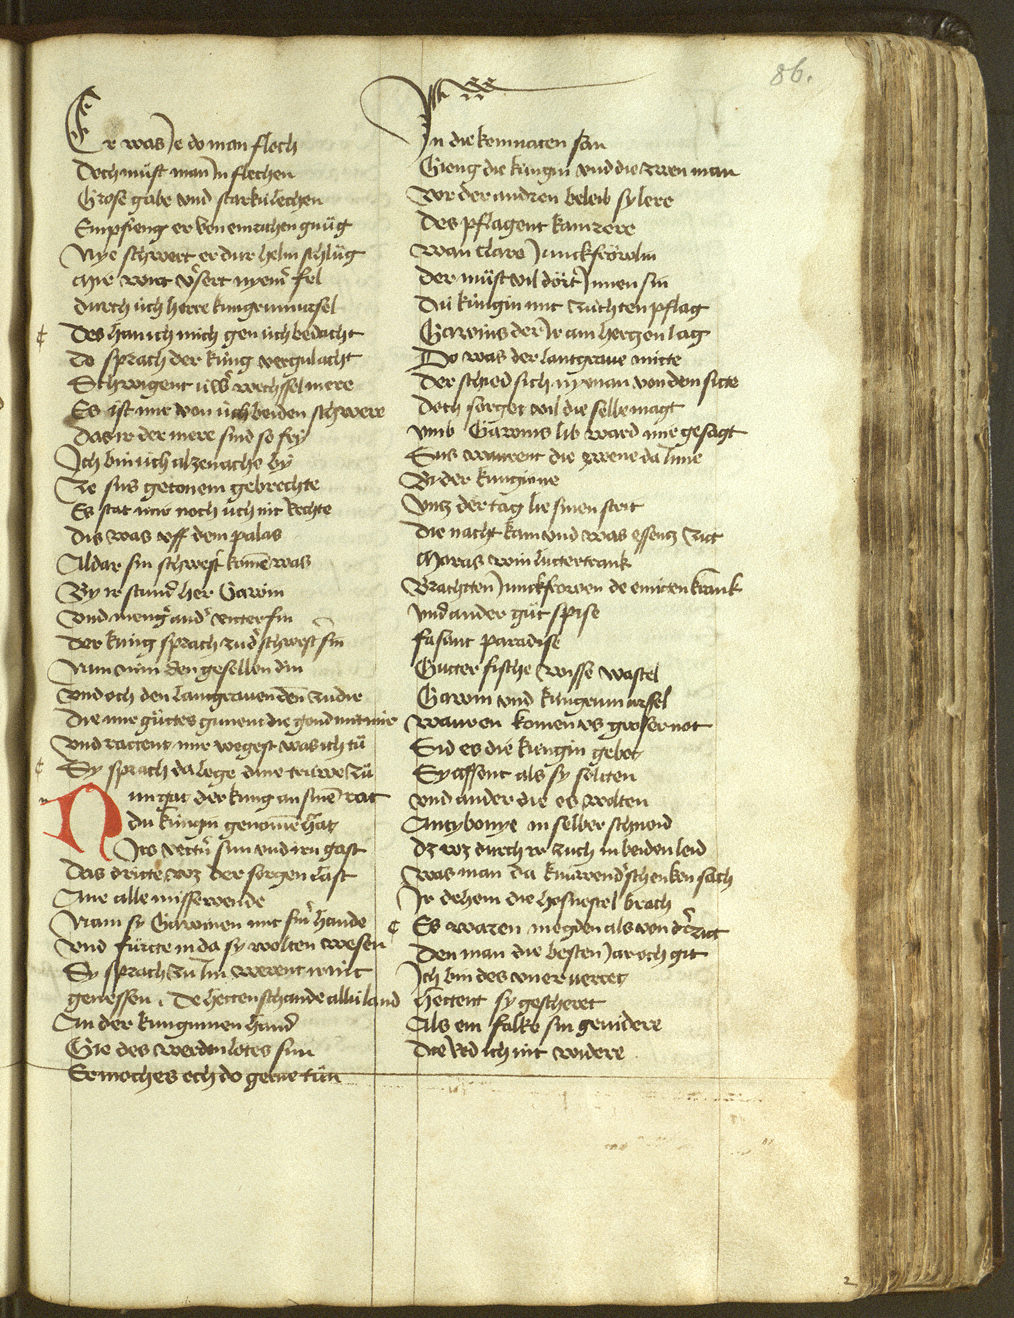 86.
Er was Je do man floch
Doch můst man Jn flechen
Grose gabe vnd starkú lechen
Empfieng er von einrichen gnůg
Nye schwert er dur helm schlůg
durch úch herre kúng
Des han ich mich gen úch bedacht
Do sprach der kúng vergulacht
Schwigent úwer wechssel mere
Es ist mir von úch beiden schwere
Das ir der mere sind so fry
Jch bin úch alze nache by
Ze sus getonem gebrechte
Es stat mir noch úch nit rechte
Dis was vff dem palas
Aldar sin schwester komen was
By ir stůnd her Gawin
vnd meng ander ritter fin
Der kúng sprach zů der schwester sin
Nun nim den gesellen din
vnd och den lantgrauen den zů dir
Die mir gůttes gunent die gond mit mir
vnd rattent mir wegest was ich tů
Sy sprach da lege dine trúwe zů
Nun gat der kúng an sinen rat
du kúngin genomen hat
Jrs vettern sun vnd irn gast
Das dritte wz der sorgen last
Ane alle missewende
Nam sy Gawinen mit siner hande
vnd fůrte in da sy wolten wesen
Sy sprach zů Jm werent ir nút
genessen . De hettens schande allú land
An der kúnginnen hand
Gie des werden lotes sun
Er moches och do gerne tůn
Jn die kemnaten san
Gieng die kúngin vnd die zwen man
vor der andren beleib sy lere
Des pflagent kamrere
wan clare Junckfrówlin
der můst vil dört Jnnen sin
Dú kúngin mit zúchten pflag
Gawins der Jr am hertzen lag
Do was der lantgraue mitte
Der schied sich niena von dem sitte
Doch sorget vil die selbe magt
vmb Gawins lib ward mir gesagt
Sus warent die zwene da Jnne
By der kúnginne
vntz der tag lie sinen strit
Die nacht kam vnd was essens zit
Moras win luttertrank
Brachtten Junckfrowen de enmiten krank
vnd ander gůt spise
fasant paradise
Gutter fische wisse wastel
Gawin vnd
waren komen vs groser not
Sid es die kúngin gebot
Sy assent als sy solten
vnd ander die es wolten
Antybonye in selber schneid
Dz wz durch ir zuch in beiden leid
was man da knúwender schenken sach
Jr dehein die hosnestel brach
Es waren megden als von der zit
Den man die besten Jar och git
Jch bin des vnerverret
Hettent sy gescheret
Als ein falke sin gewidere
Da red ich nit widere